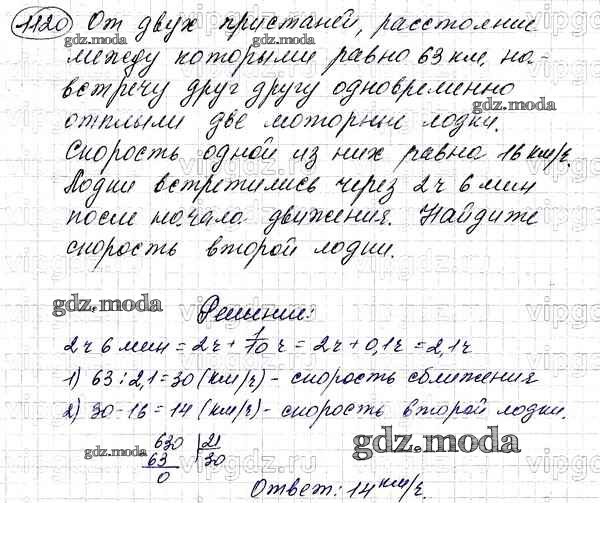 1120 От двух пристаней, расстояние
между которыми равно 63 км, на-
встречу друг другу одновременно
отплыли две моторные лодки.
Скорость одной из них равна 16 км/ч.
Лодки встретились через 2ч 6 мин
после начала движения. Найдите
скорость второй лодки.
gdz.moda
gdz.moda
gdz.moda
gdz.moda
Решение:
2ч 6 мин = 2ч + 1/10 ч = 2ч + 0,1ч = 2,1ч
1) 63 : 2,1 = 30 (км/ч) - скорость сближения
2) 30 - 16 = 14 (км/ч) - скорость второй лодки.
630 21
63 30
0
gdz.moda
gdz.moda
Ответ: 14 км/ч.